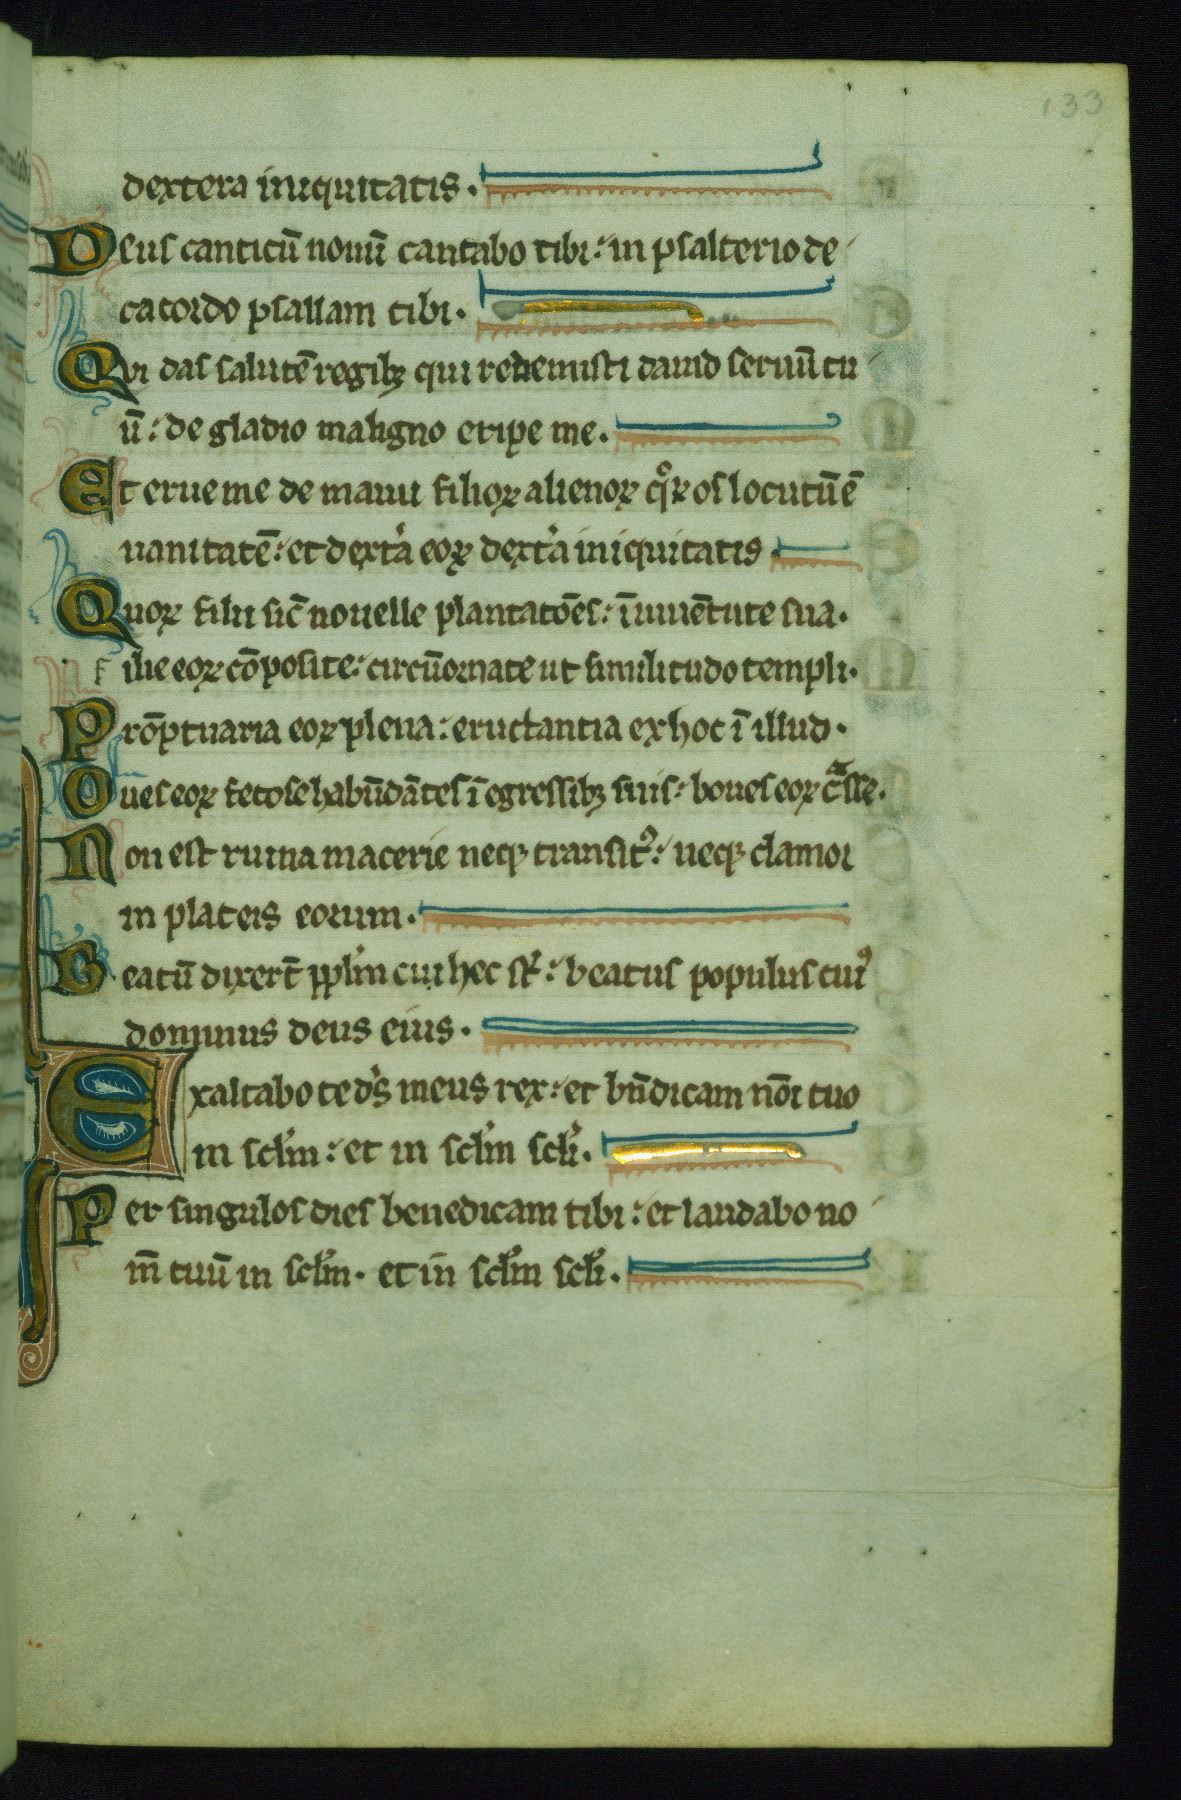 133
dextera iniquitatis.
Deus canticū nouū cantabo tibi: in psalterio de
cacordo psallam tibi.
Qui das salutē regibꝫ qui redemisti dauid seruū tu
ū: de gladio maligno eripe me.
Et erue me de manu filioꝝ alienoꝝ qͦꝝ os locutū ē
uanitatē: et dext̾a eoꝝ dext̾a iniquitatis
Quoꝝ filii sic̄ nouelle plantatōes: ī iuuētute sua.
Filie eoꝝ cōposite: circūornate ut similitudo templi.
Prōptuaria eoꝝ plena: eructantia ex hoc ī illud.
Oues eoꝝ fetose habūdātes ī egressibꝫ suis: boues eoꝝ cᷓsse.
Non est ruina macerie neqꝫ transitꝰ: neqꝫ clamor
in plateis eorum.
Beatū dixert̄ pplm̄ cui hec st̄: beatus populus cuiꝰ
dominus deus eius.
Exaltabo te ds̄ meus rex: et bn̄dicam nōi tuo
in sclm̄: et in sclm̄ sclī.
Per singulos dies benedicam tibi: et laudabo no
m̄ tuū in sclm̄. et in sclm̄ sclī.